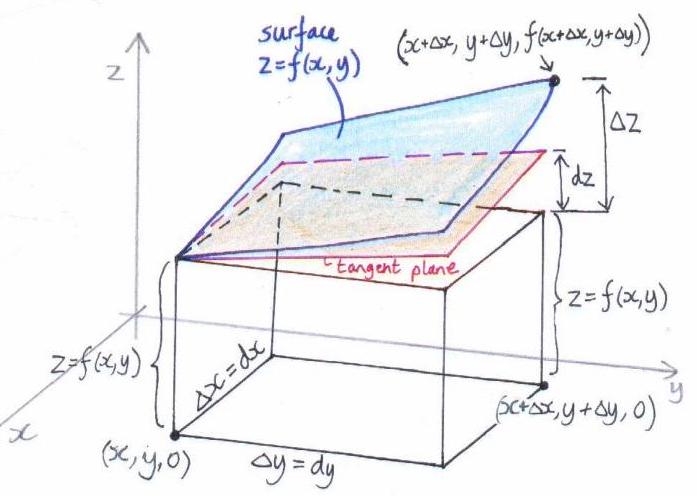 surface
z=f(x,y)
(x+Δx, y+Δy, f(x+Δx,y+Δy))
z
Δz
dz
tangent plane
z=f(x,y)
z=f(x,y)
Δx=dx
y
x
(x+Δx,y+Δy,0)
(x,y,0)
Δy=dy